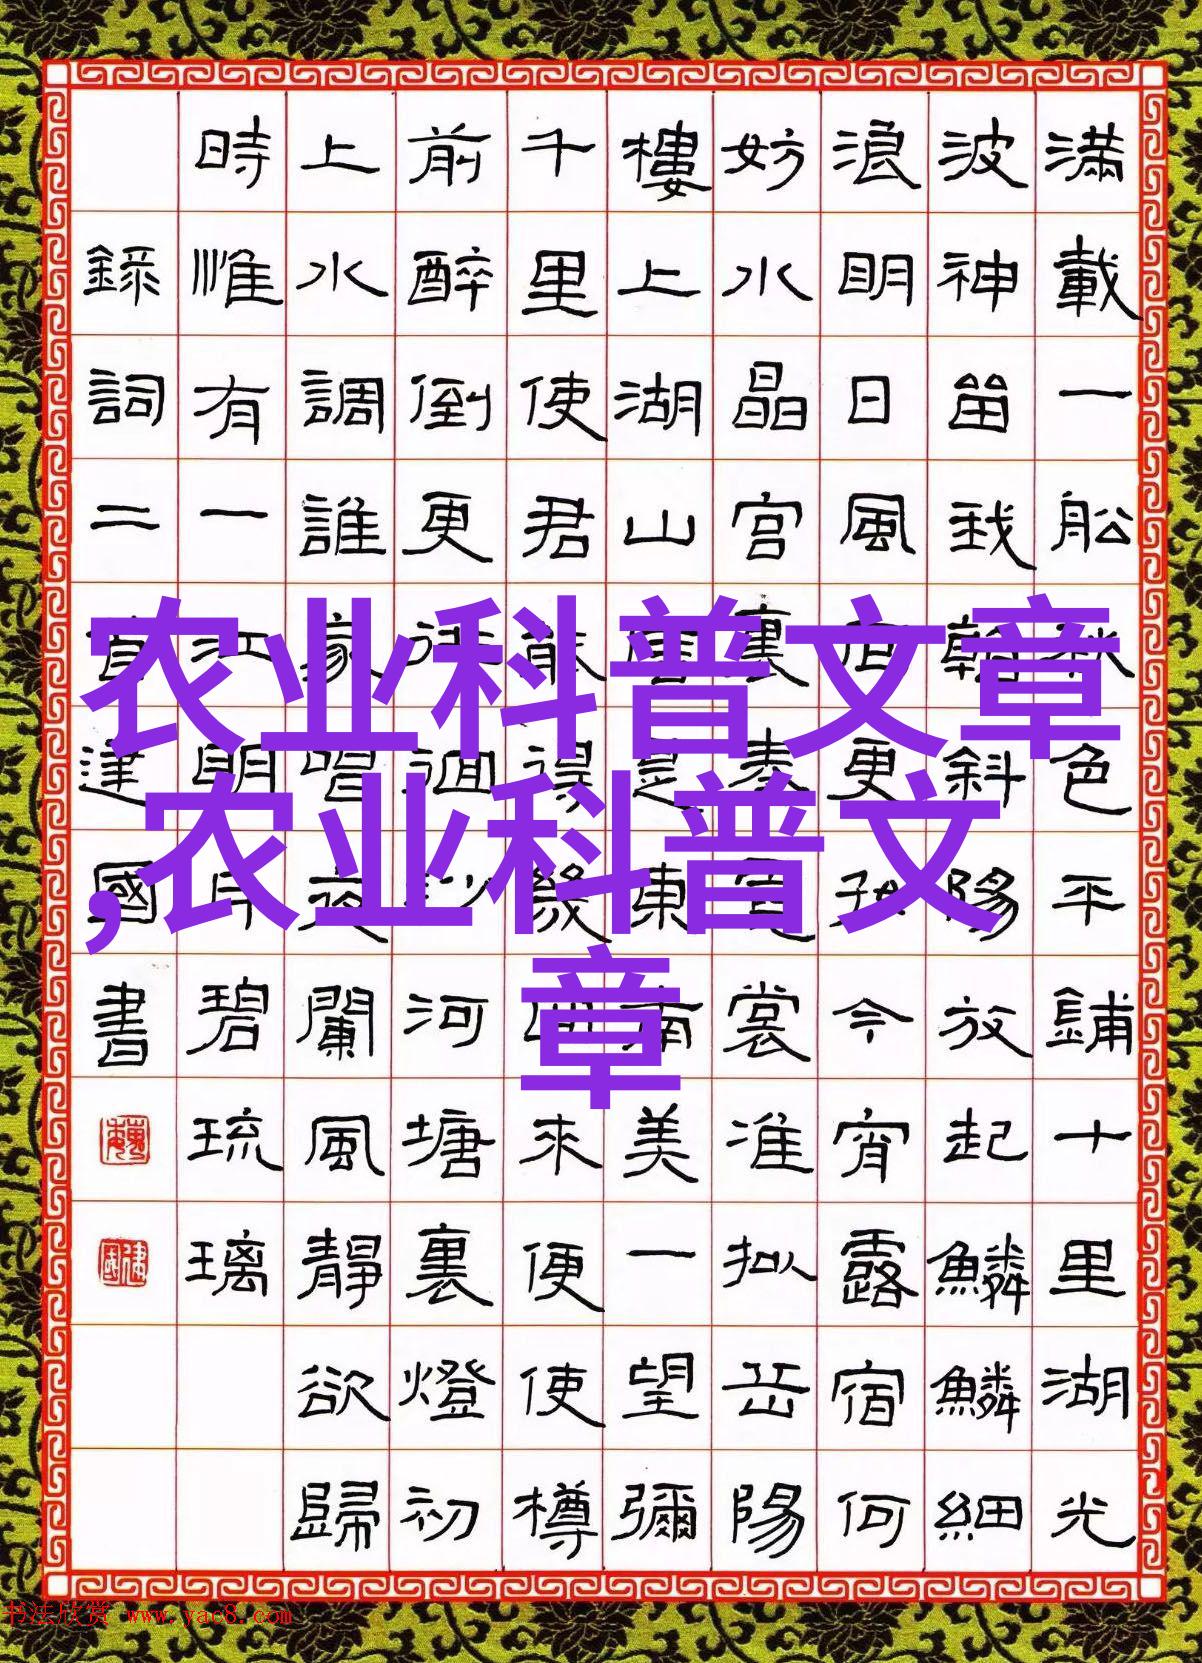 滿載一船秋色平鋪十里湖光
波神留我斜陽放起鱗鱗細
浪明日風回更好今宵露宿何
妨水晶宮裏奏霓裳准拟岳陽
樓上湖山信是東南美一望彌
千里使君能得幾回來便使樽
前醉倒更徘徊沙河塘裏燈初
上水調誰家唱夜闌風靜欲歸
時惟有一江明月碧琉璃
錄詞二首達國書
农业科普文章
,农业科普文
章
书法欣赏 www.yac8.com